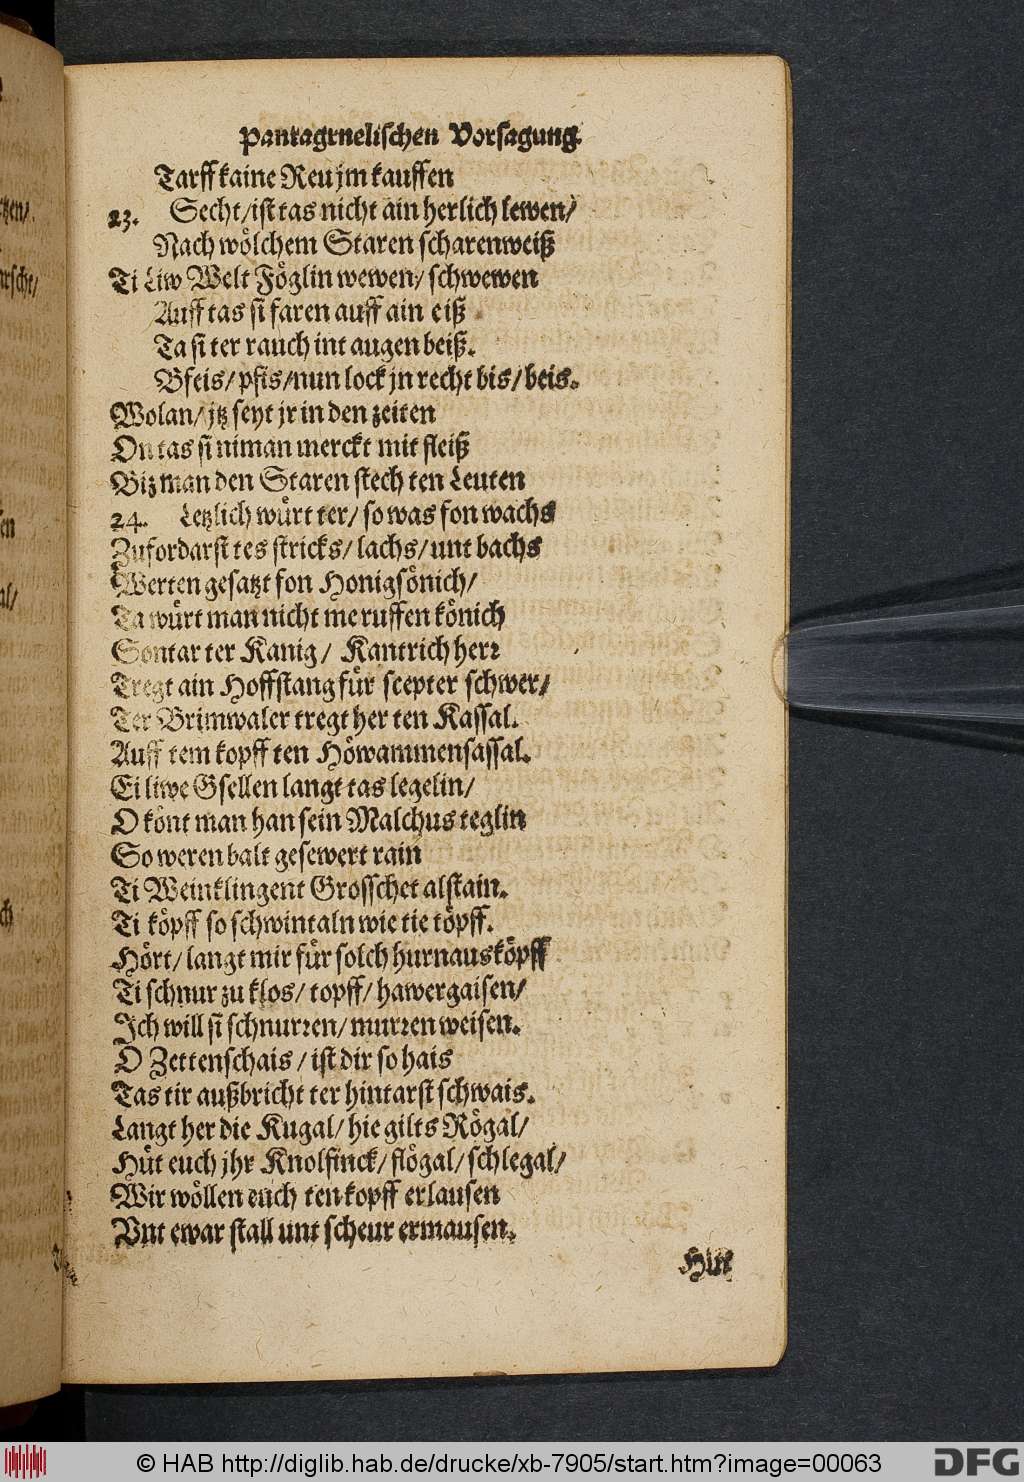 Pantagrnelischen Vorsagung.
Tarff kaine Reu jm kauffen
23. Secht/ist tas nicht ain herlich lewen/
Nach wölchem Staren scharenweiß
Ti Liw Welt Föglin wewen/schwewen
Auff tas si faren auff ain eiß
Ta si ter rauch int augen beiß.
Bfeis/pfis/nun lock jn recht bis/beis.
Wolan/jtz seyt jr in den zeiten
On tas si niman merckt mit fleiß
Biz man den Staren stech ten Leuten
24. Letzlich würt ter/so was fon wachs
Zufordarst tes stricks/lachs/unt bachs
Werten gesatzt fon Honigsönich/
Ta würt man nicht me ruffen könich
Sontar ter Kanig/ Kantrich herr
Tregt ain Hoffstang für scepter schwer/
Ter Brimwaler tregt her ten Kassal.
Auff tem kopff ten Höwammensassal.
Ei liwe Gsellen langt tas legelin/
O könt man han sein Malchus teglin
So weren balt gesewert rain
Ti Weinklingent Grosschet alstain.
Ti köpff so schwintaln wie tie töpff.
Hört/langt mir für solch hurnausköpff
Ti schnur zu klos/topff/hawergaisen/
Ich will si schnurren/murren weisen.
O Zettenschais/ist dir so hais
Tas tir außbricht ter hintarst schwais.
Langt her die Kugal/hie gilts Rögal/
Hüt euch jhr Knolfinck/flögal/schlegal/
Wir wöllen euch ten kopff erlausen
Unt ewar stall unt scheur ermausen.
Hüt
© HAB http://diglib.hab.de/drucke/xb-7905/start.htm?image=00063
DFG